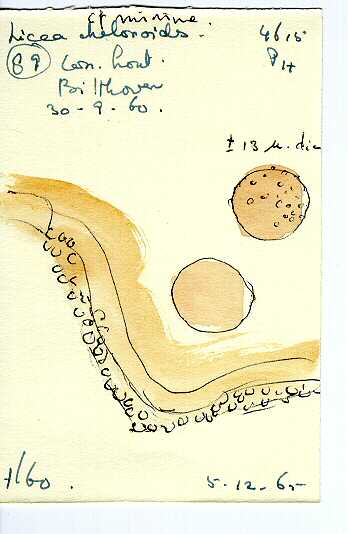 cf minima.
Licea chelonoides. 4615
89 Con. hout. P14
Bilthoven
30-9-60.
± 13 µ. dia
1/60.
5-12-65